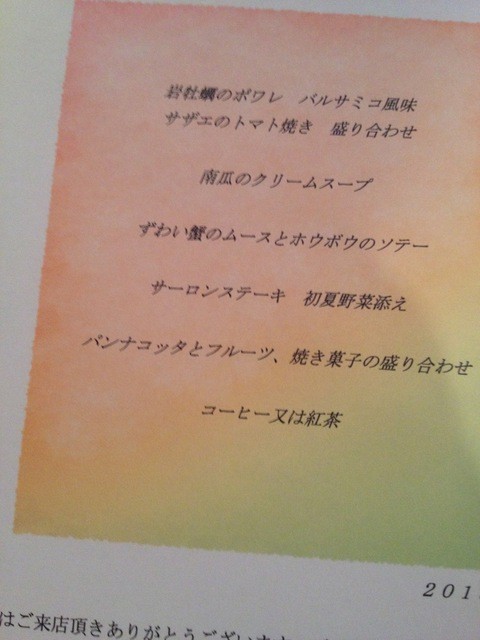 岩牡蠣のポワレ　バルサミコ風味
サザエのトマト焼き　盛り合わせ
南瓜のクリームスープ
ずわい蟹のムースとホウボウのソテー
サーロンステーキ　初夏野菜添え
パンナコッタとフルーツ、焼き菓子の盛り合わせ
コーヒー又は紅茶
201
はご来店頂きありがとうございます